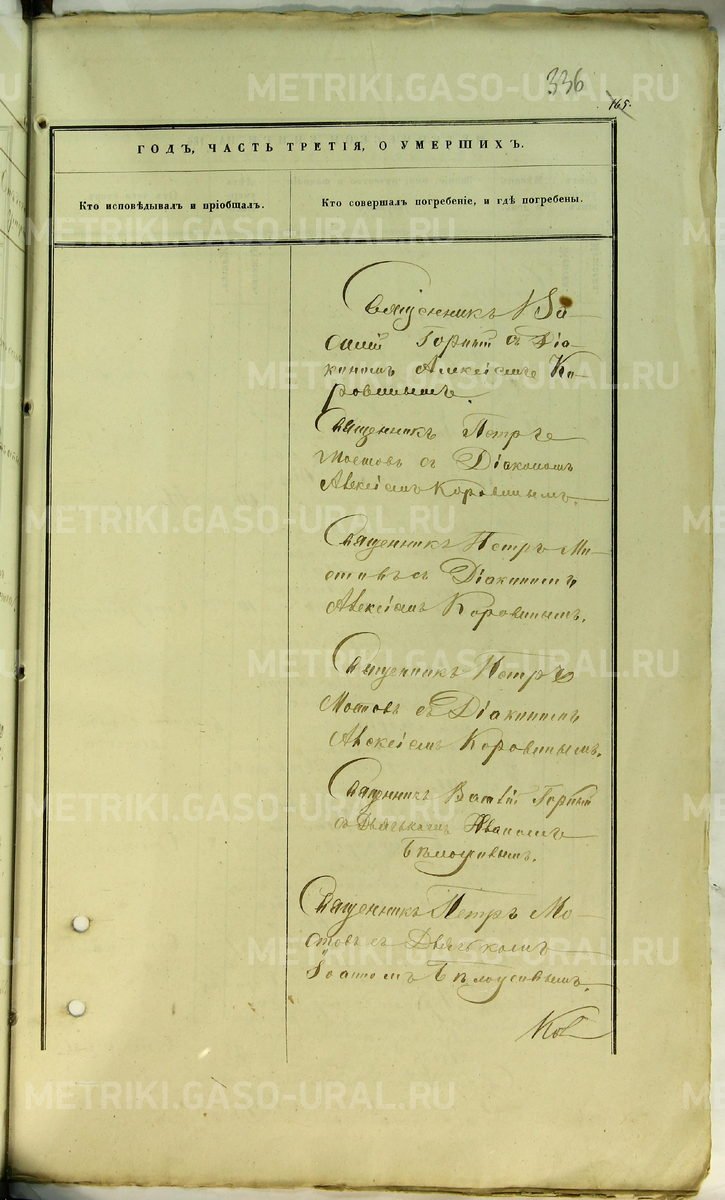 336
165.
ГОДЪ, ЧАСТЬ ТРЕТІЯ, О УМЕРШИХЪ.
Кто исповѣдывалъ и пріобщалъ.
Кто совершалъ погребеніе, и гдѣ погребены.
Священникъ Ва-
силій Горный съ Діа-
кономъ Алексіемъ Ко-
ровинымъ.
Священникъ Петръ
Мостовъ съ Діакономъ
Алексіемъ Коровинымъ.
Священникъ Петръ Мо-
стовъ съ Діакономъ
Алексіемъ Коровинымъ.
Священникъ Петръ
Мостовъ съ Діакономъ
Алексіемъ Коровинымъ.
Священникъ Василій Горный
съ Дьячькомъ Иваномъ
Бѣлоусовымъ.
Священникъ Петръ Мо-
стовъ съ Дьячькомъ
Іоанномъ Бѣлоусовымъ.
METRIKI.GASO-URAL.RU